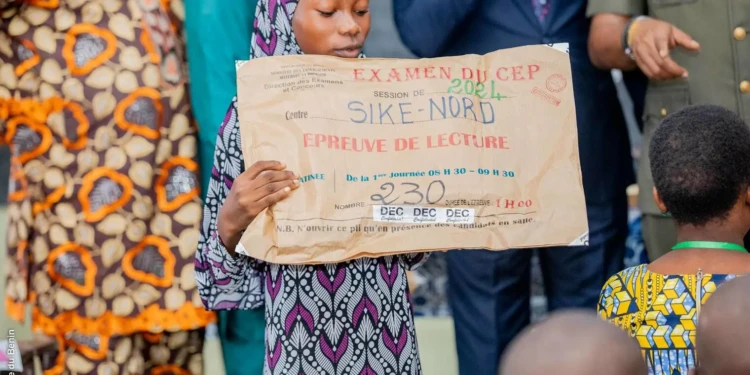 EXAMEN DU CEP
Direction des Examens
et Concours
SESSION DE 2024
Centre SIKE-NORD
EPREUVE DE LECTURE
De la 1ère Journée 08 H 30 - 09 H30
NOMBRE 230 DUREE DE L'EPREUVE 1H00
DEC DEC DEC
N.B. N'ouvrir ce pli qu'en présence des candidats en salle.
du Bénin